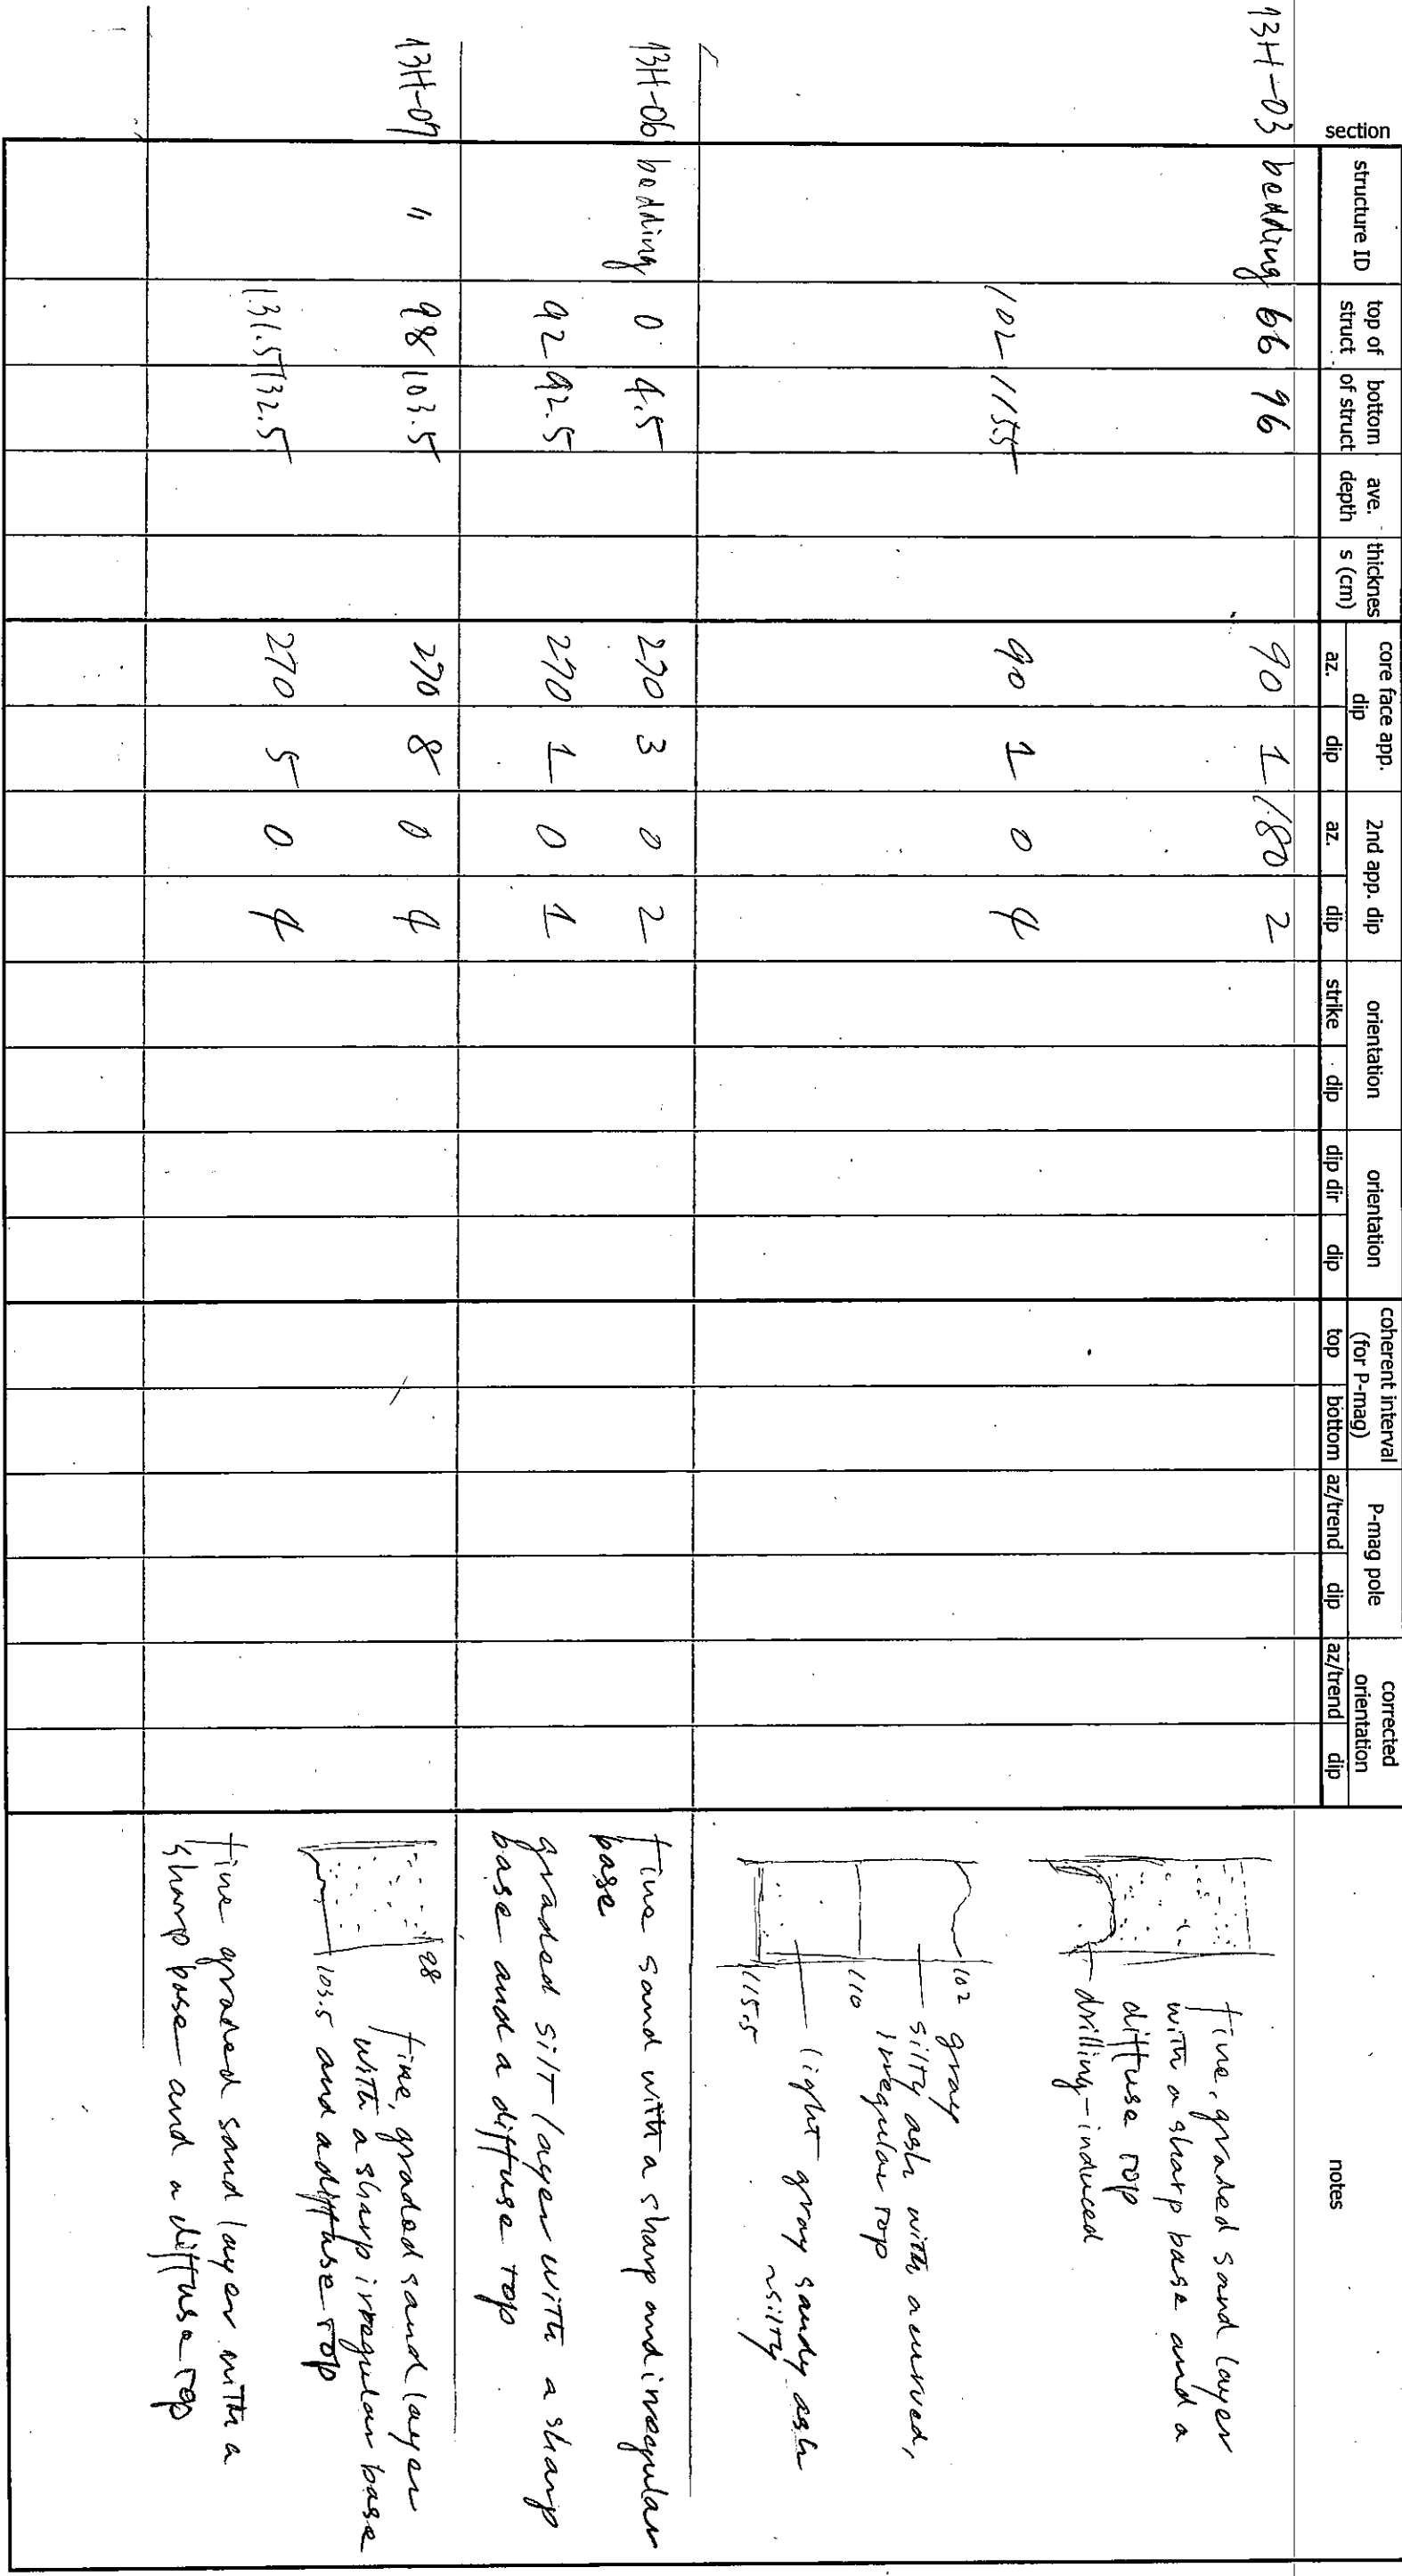 section
structure ID
top of struct
bottom of struct
ave. depth
thicknes s (cm)
core face app. dip
az. dip
2nd app. dip
az. dip
orientation
strike dip
orientation
dip dir dip
coherent interval (for P-mag)
top bottom
P-mag pole
az/trend dip
corrected orientation
az/trend dip
notes
13H-03 bedding 66 96 90 1 180 2
fine, graded sand layer
with a sharp base and a
diffuse top
drilling-induced
102 115.5 90 1 0 4
102 gray
silty ash with a curved,
irregular top
110
light gray sandy ash
~silty
115.5
13H-06 bedding 0 4.5 270 3 0 2
fine sand with a sharp and irregular
base
92 92.5 270 1 0 1
graded silt layer with a sharp
base and a diffuse top
13H-07 " 98 103.5 270 8 0 4
98 fine, graded sand layer
with a sharp irregular base
103.5 and a diffuse top
131.5 132.5 270 5 0 4
fine graded sand layer with a
sharp base and a diffuse top